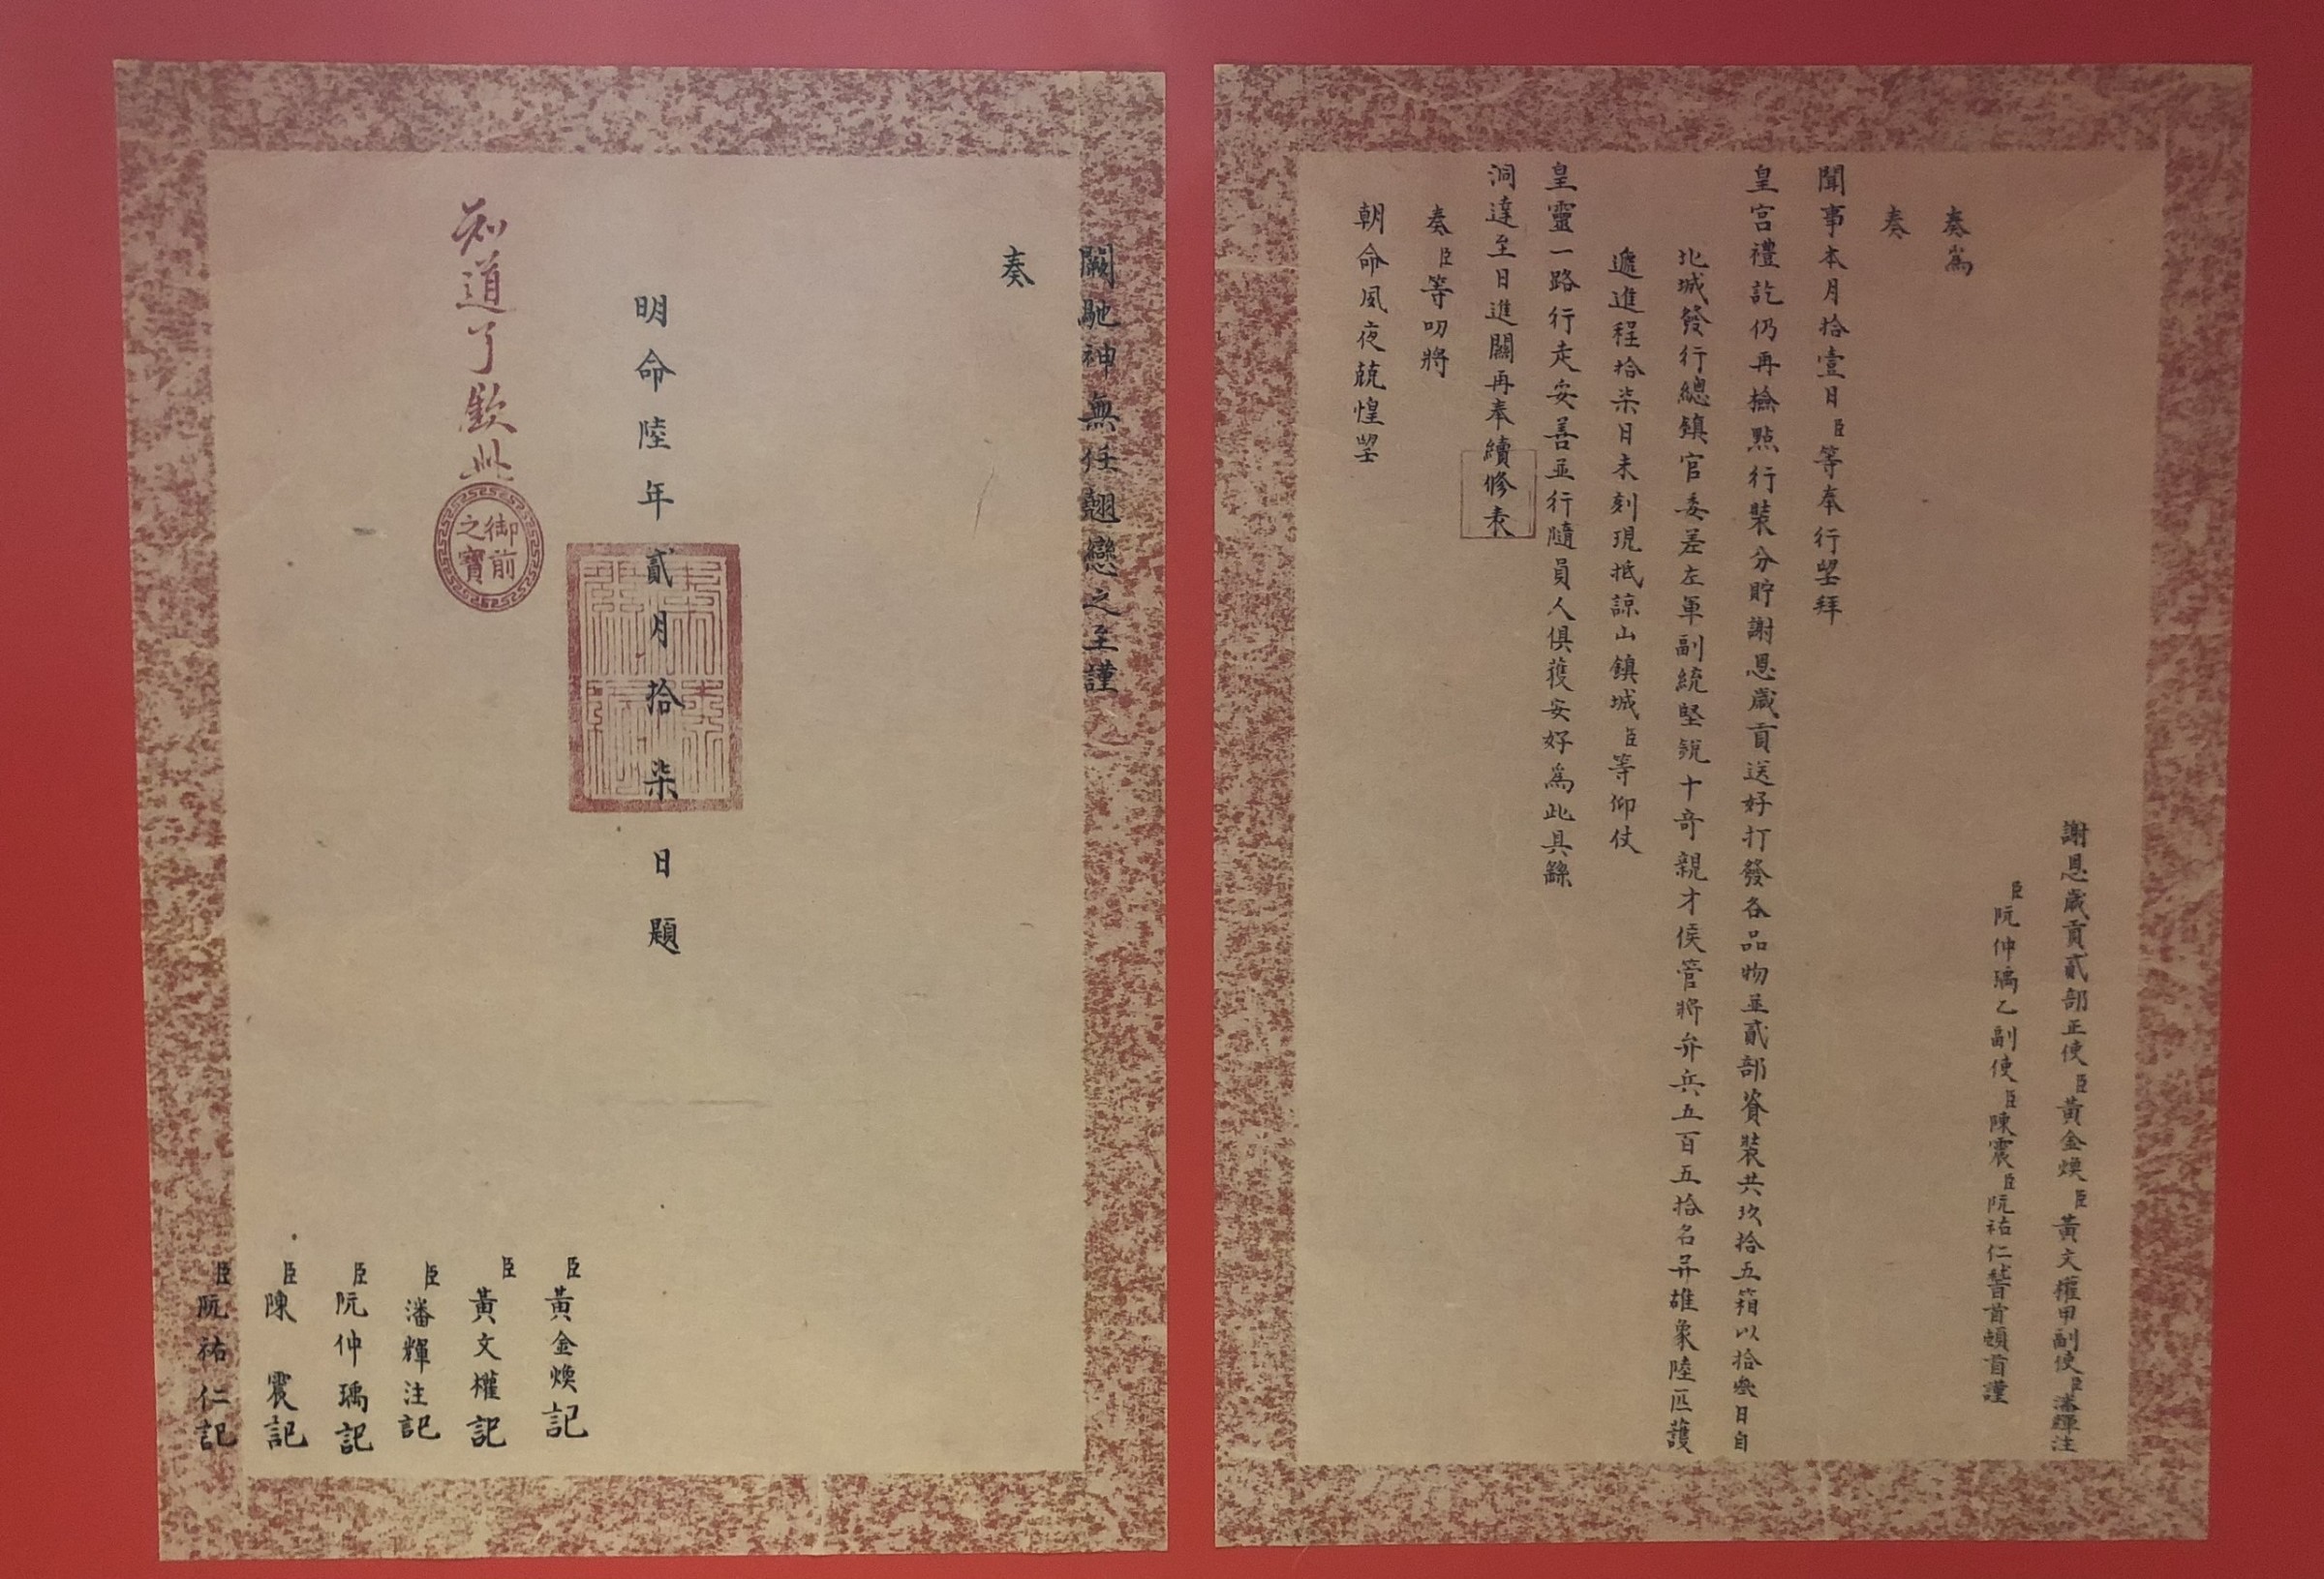 謝恩歲貢貳部正使臣黃金煥臣黃文權甲副使臣潘輝注
臣阮仲瑀乙副使臣陳震臣阮祐仁稽首頓首謹
奏爲
奏
聞事本月拾壹日臣等奉行望拜
皇宮禮訖仍再撿點行裝分貯謝恩歲貢送好打發各品物並貳部資裝共玖拾五箱以拾叄日自
北城發行總鎮官委差左軍副統堅銳十奇親才侯管將弁兵五百五拾名并雄象陸匹護
遞進程拾柒日未刻現抵諒山鎮城臣等仰仗
皇靈一路行走安善並行隨員人俱獲安好爲此具繇
洞達至日進關再奉續修表
奏臣等叨將
朝命夙夜兢惶望
闕馳神無任翹戀之至謹
奏
明命陸年貳月拾柒日題
知道了欽此
御前之寶
臣黃金煥記
臣黃文權記
臣潘輝注記
臣阮仲瑀記
臣陳震記
臣阮祐仁記